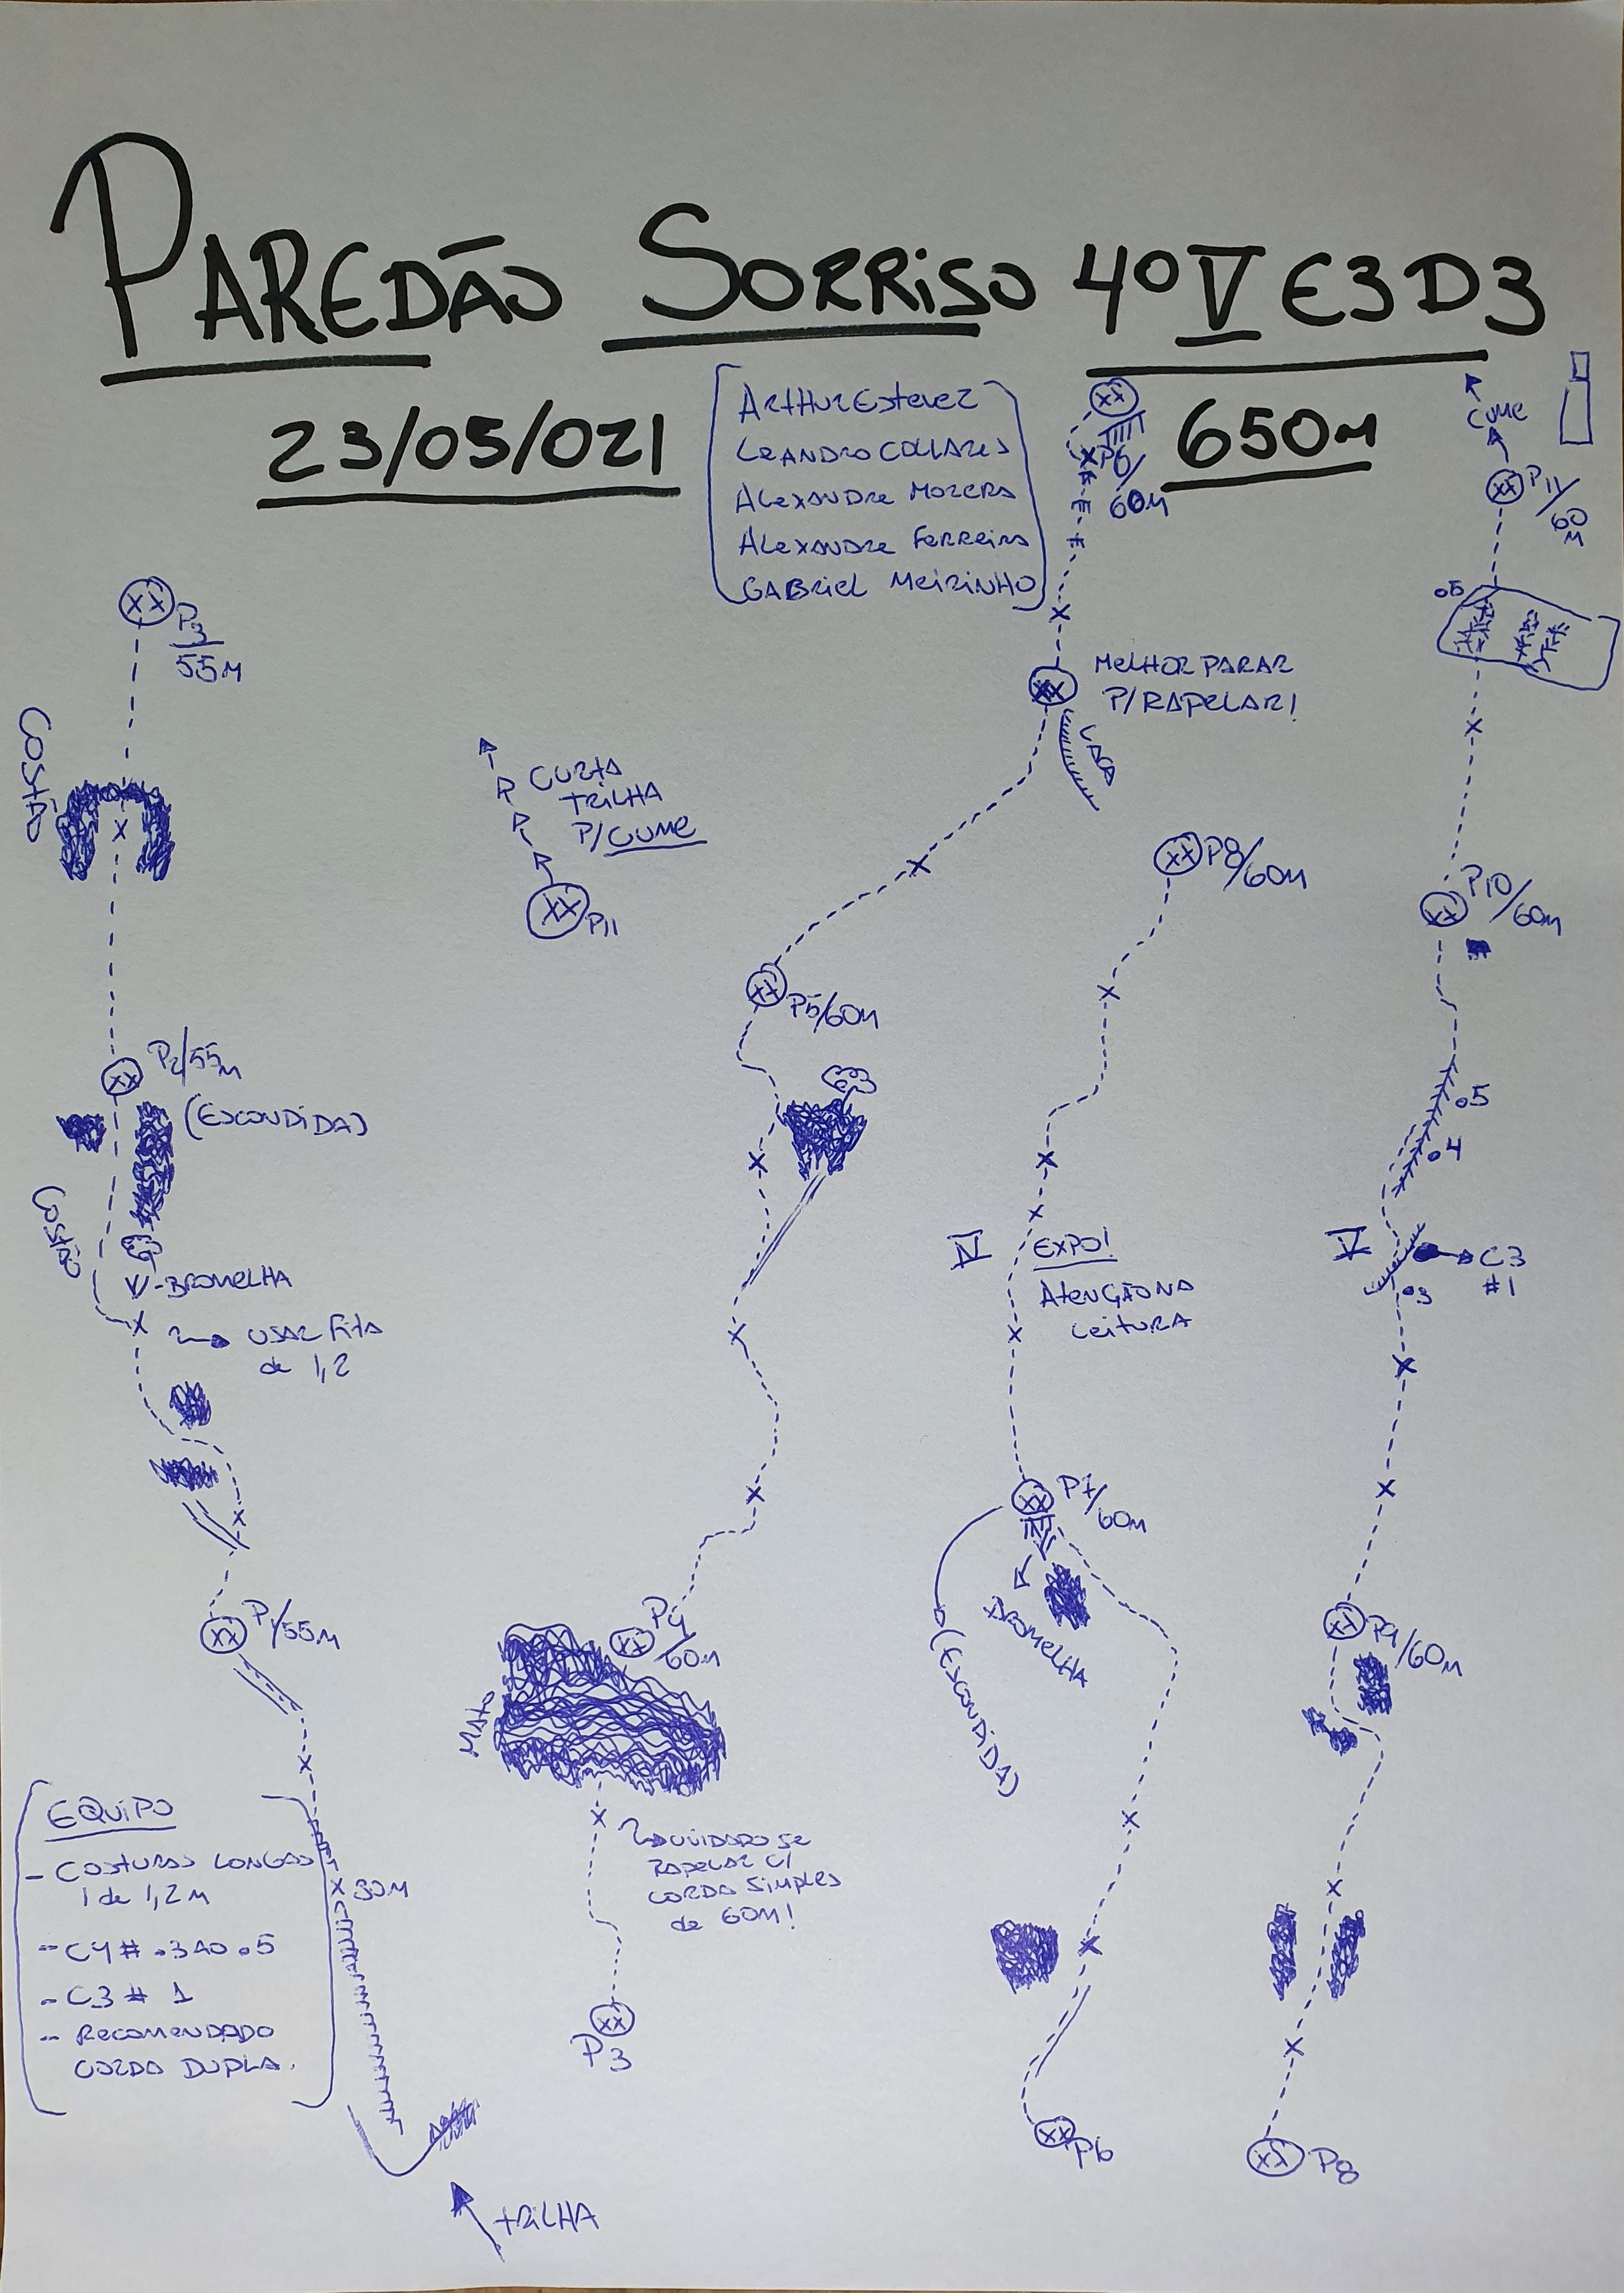 PAREDÃO SORRISO 4º V E3 D3
23/05/021
650M
ARTHUR ESTEVEZ
LEANDRO COLLARES
ALEXANDRE MOZERA
ALEXANDRE FERREIRA
GABRIEL MEIRINHO
P3/
55M
COSTÃO
P2/55M
(ESCONDIDA)
COSTÃO
V-BROMELHA
USAR FITA
de 1,2
P1/55M
30M
EQUIPO
- COSTURAS LONGAS
1 de 1,2M
- C4# .3 AO .5
- C3 # 1
- RECOMENDADO
CORDA DUPLA.
TRILHA
CURTA
TRILHA
P/ CUME
P11
P5/60M
P4
/60M
MATO
CUIDADO SE
RAPELAR C/
CORDA SIMPLES
de 60M!
P3
P6/
60M
MELHOR PARAR
P/ RAPELAR!
LACA
P8/60M
IV
EXPO!
ATENÇÃO NA
LEITURA
P7/
60M
BROMELHA
(ESCONDIDA)
P6
CUME
P11/
60
M
.5
P10/
60M
.5
.4
V
C3
#1
.3
P9/60M
P8